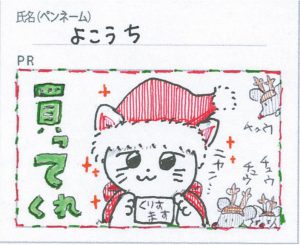 氏名(ペンネーム)
よこうち
PR
買ってくれ
ニヤッ
くりす
ます
チュウ
チュウ
チュウ